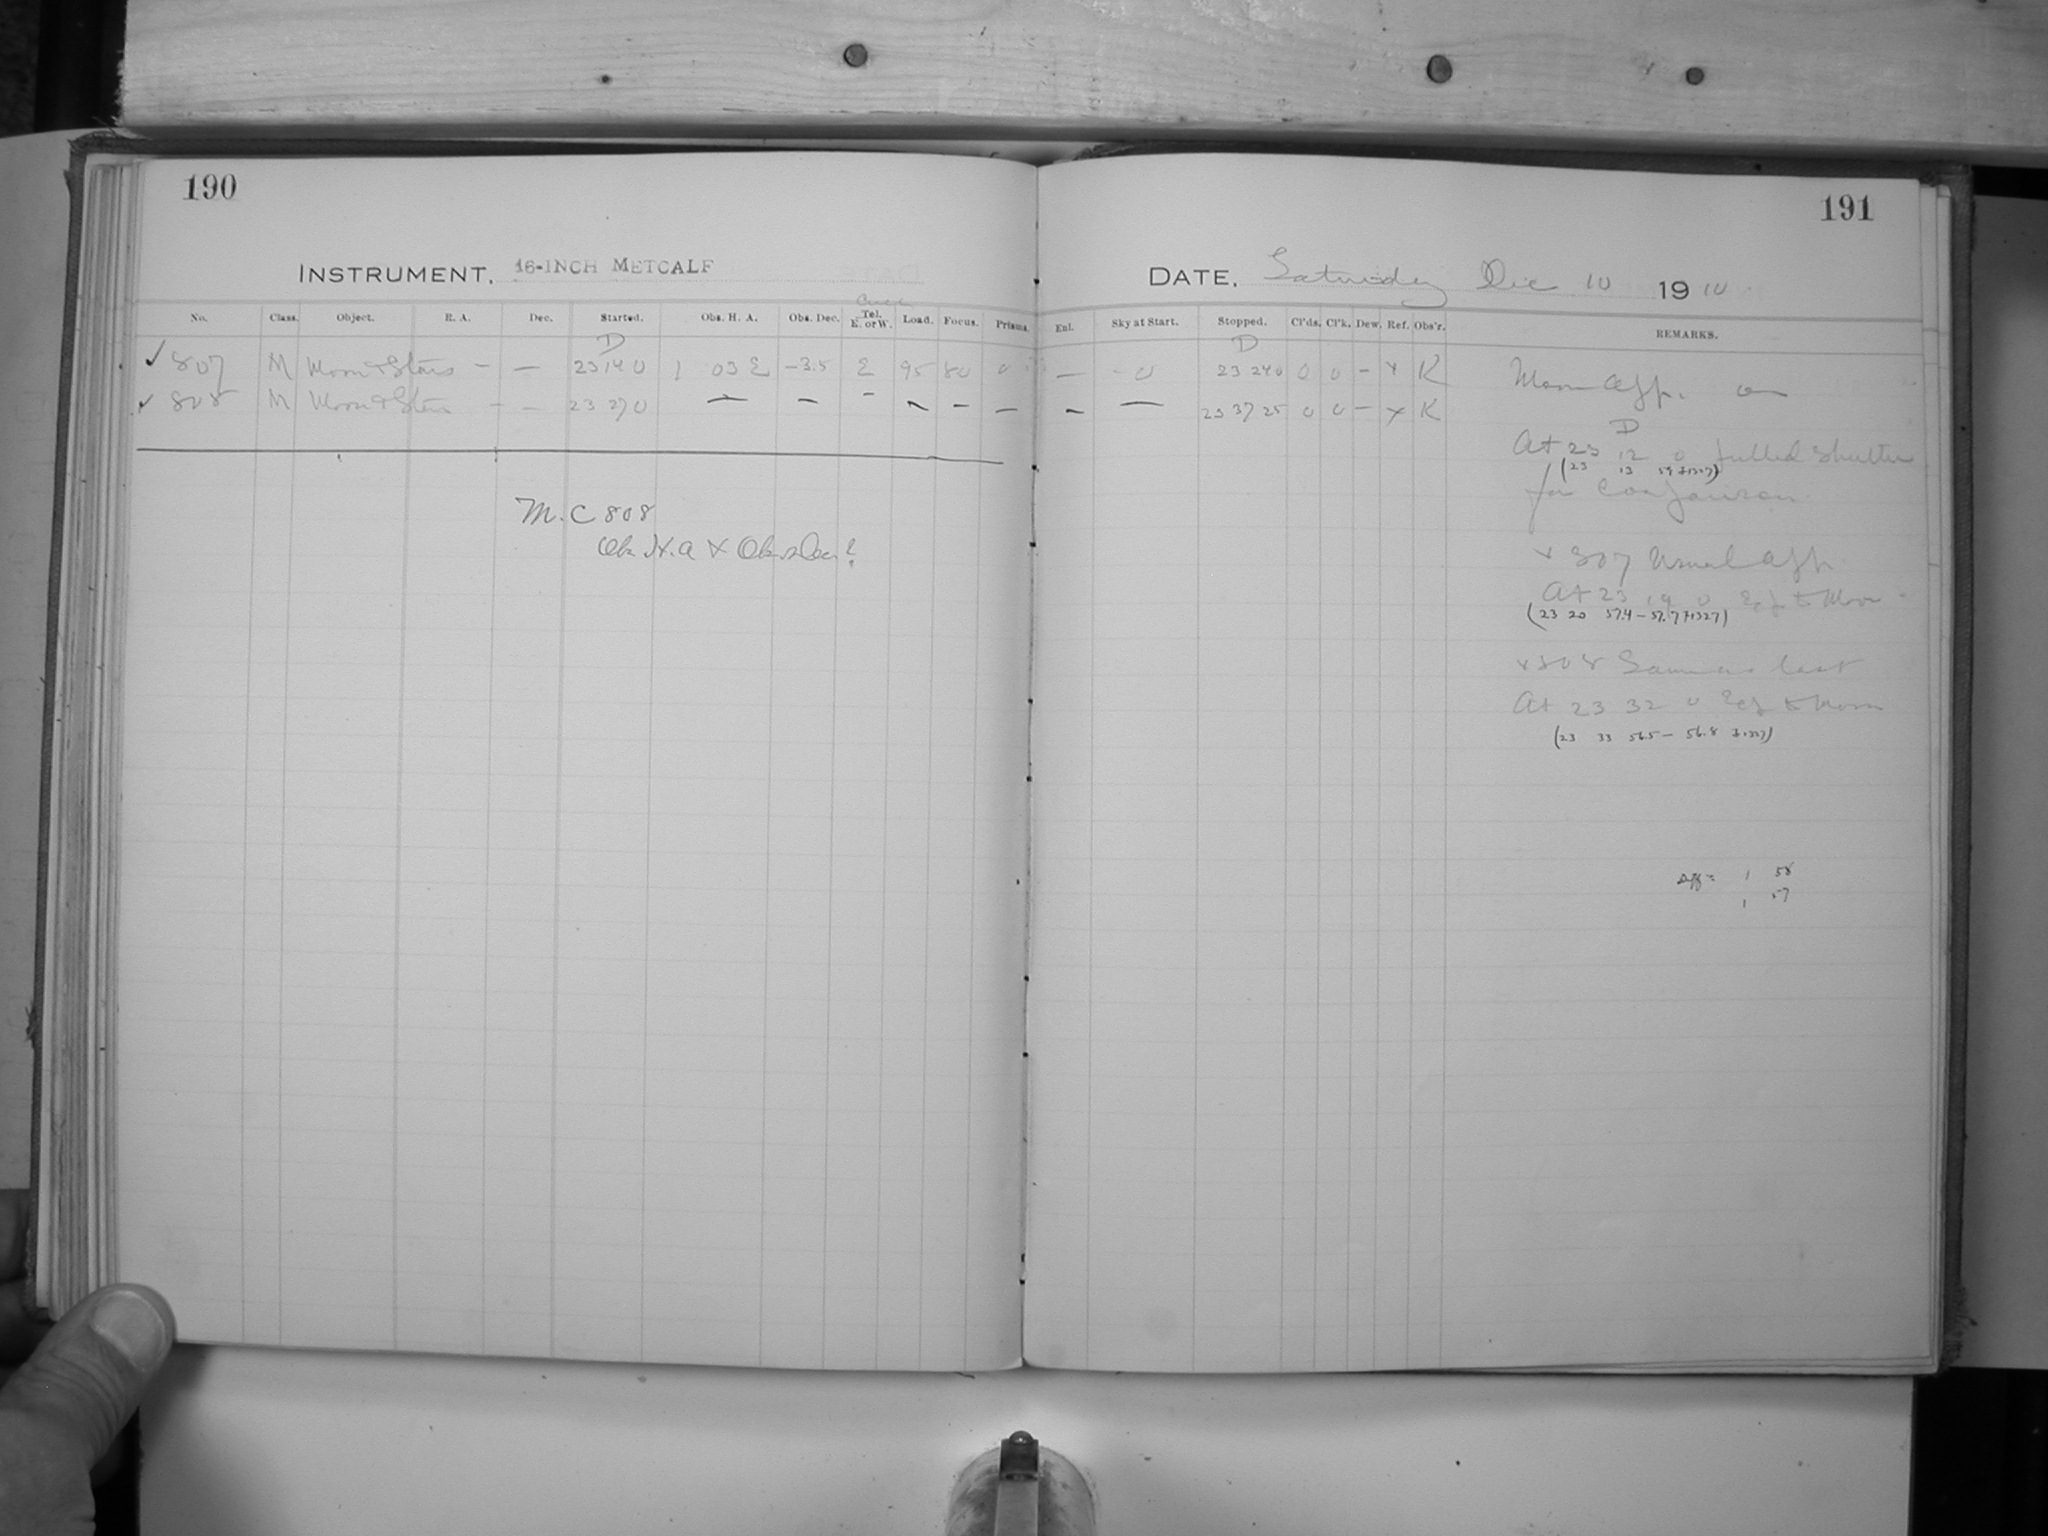 190
INSTRUMENT, 16-INCH METCALF
No. Class. Object. R. A. Dec. Started. Obs. H. A. Obs. Dec. Tel. E. or W. Load. Focus. Prisms.
D
✓ 807 M Moon & Stars — — 23 14 0 1 03 E -3.5 E 95 80 0
✓ 808 M Moon & Stars — — 23 27 0 — — — — — —
M. C 808
Obs H.A & Obs Dec?
191
DATE, Saturday Dec 10 1910
Enl. Sky at Start. Stopped. Cl'ds. Cl'k. Dew. Ref. Obs'r. REMARKS.
D
— 0 23 24 0 0 0 — x K Moon app. on
— — 23 37 25 0 0 — x K
D
At 23 12 0 pulled shutter
for comparison
x 807 Usual app.
At 23 19 0 to Moon
(23 20 57.4 — 57.7
x 808 Same as last
At 23 32 0 to Moon
(23 33 56.5 — 56.8
Diff = 1 58
1 57